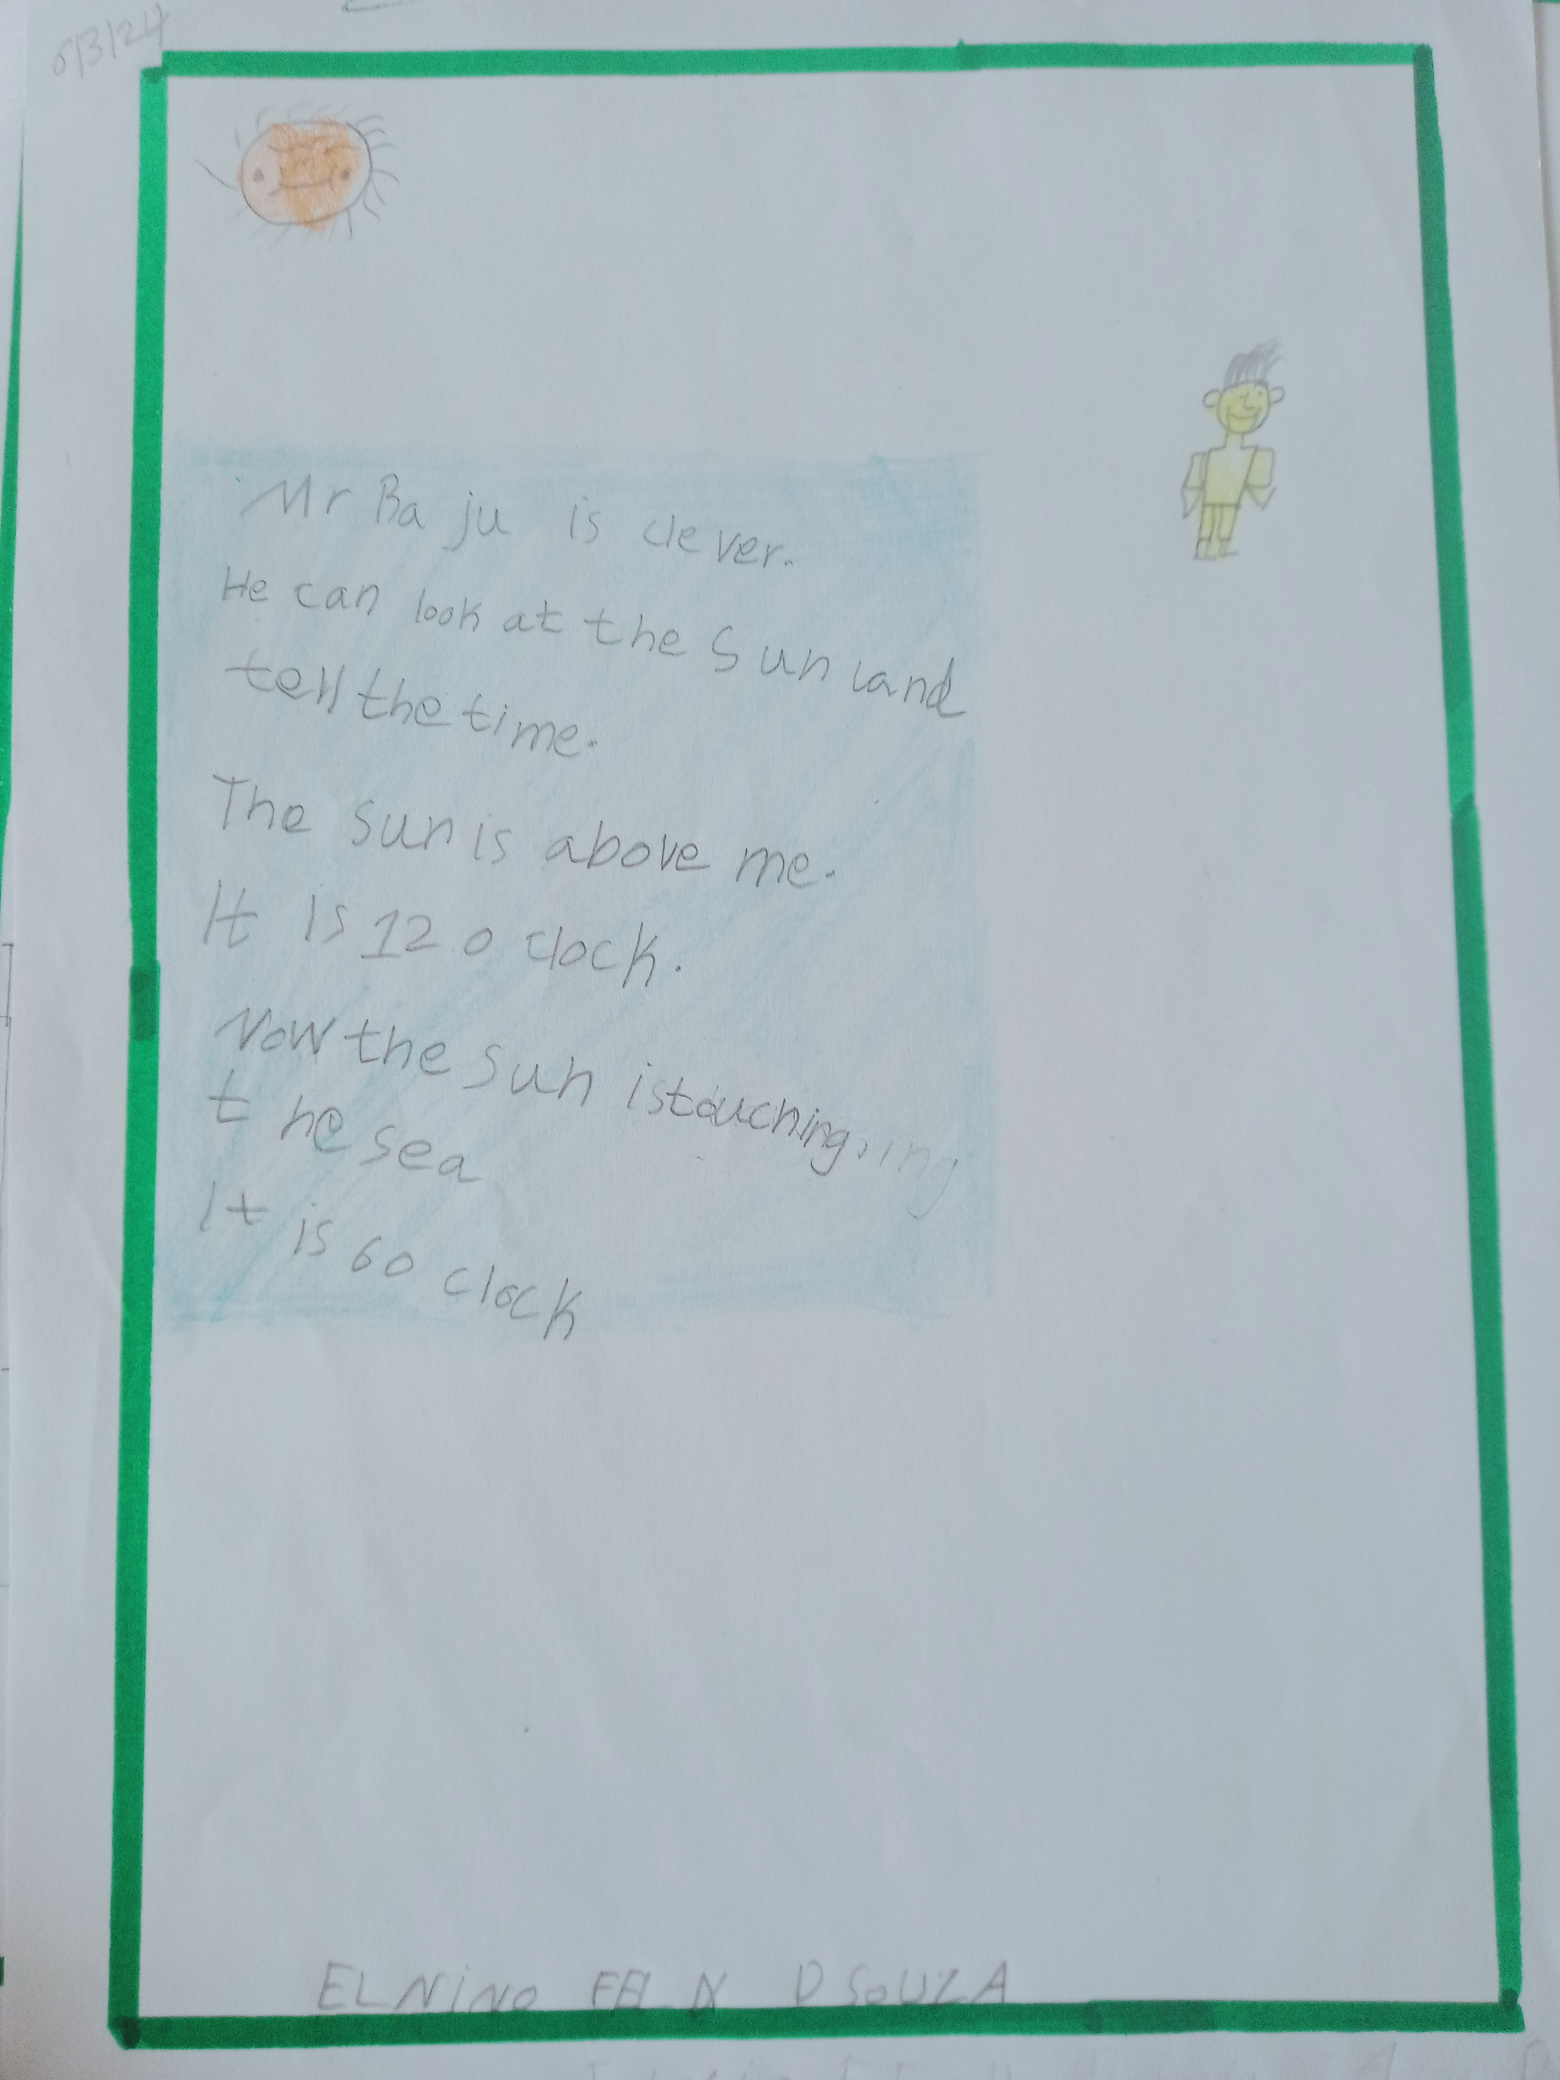 6/3/24
Mr Ba ju is clever.
He can look at the Sun and
tell the time.
The sun is above me.
It is 12 o clock.
Now the sun is touching, ing
t he sea
It is 6 o clock
ELNiNO FELIX DSOUZA